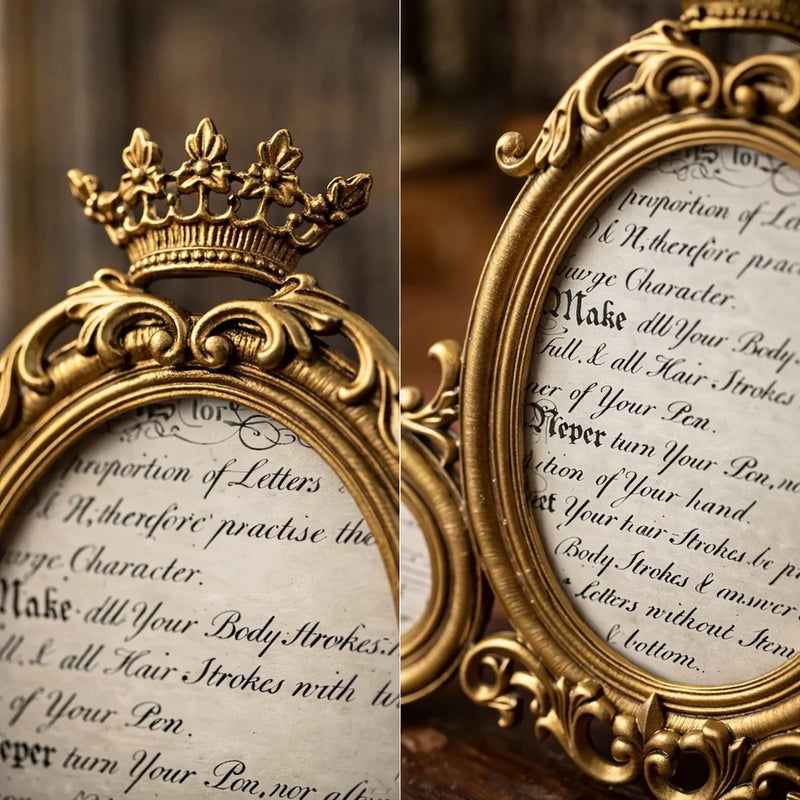 for
proportion of Letters
& N, therefore practise the
large Character.
Make all Your Body Strokes
& all Hair Strokes with
of Your Pen.
turn Your Pen, nor
for
proportion of
& N, therefore
large Character.
Make all Your Body
Full. & all Hair Strokes
of Your Pen.
Neper turn Your Pen, no
of Your hand.
Your hair Strokes be
Body Strokes & answer
Letters without Stem
& bottom.